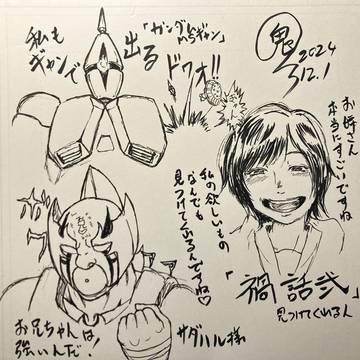 私も
ギャンで
出る
「ガンダムMSギャン」
ドワォ!!
2024
12.1
お姉さん
本当にすごいですね
私の欲しいもの
なんでも
見つけてくるんですね♡
「禍話弐」
見つけてくれるん
サダハル様
お兄ちゃんは
強いんだ!